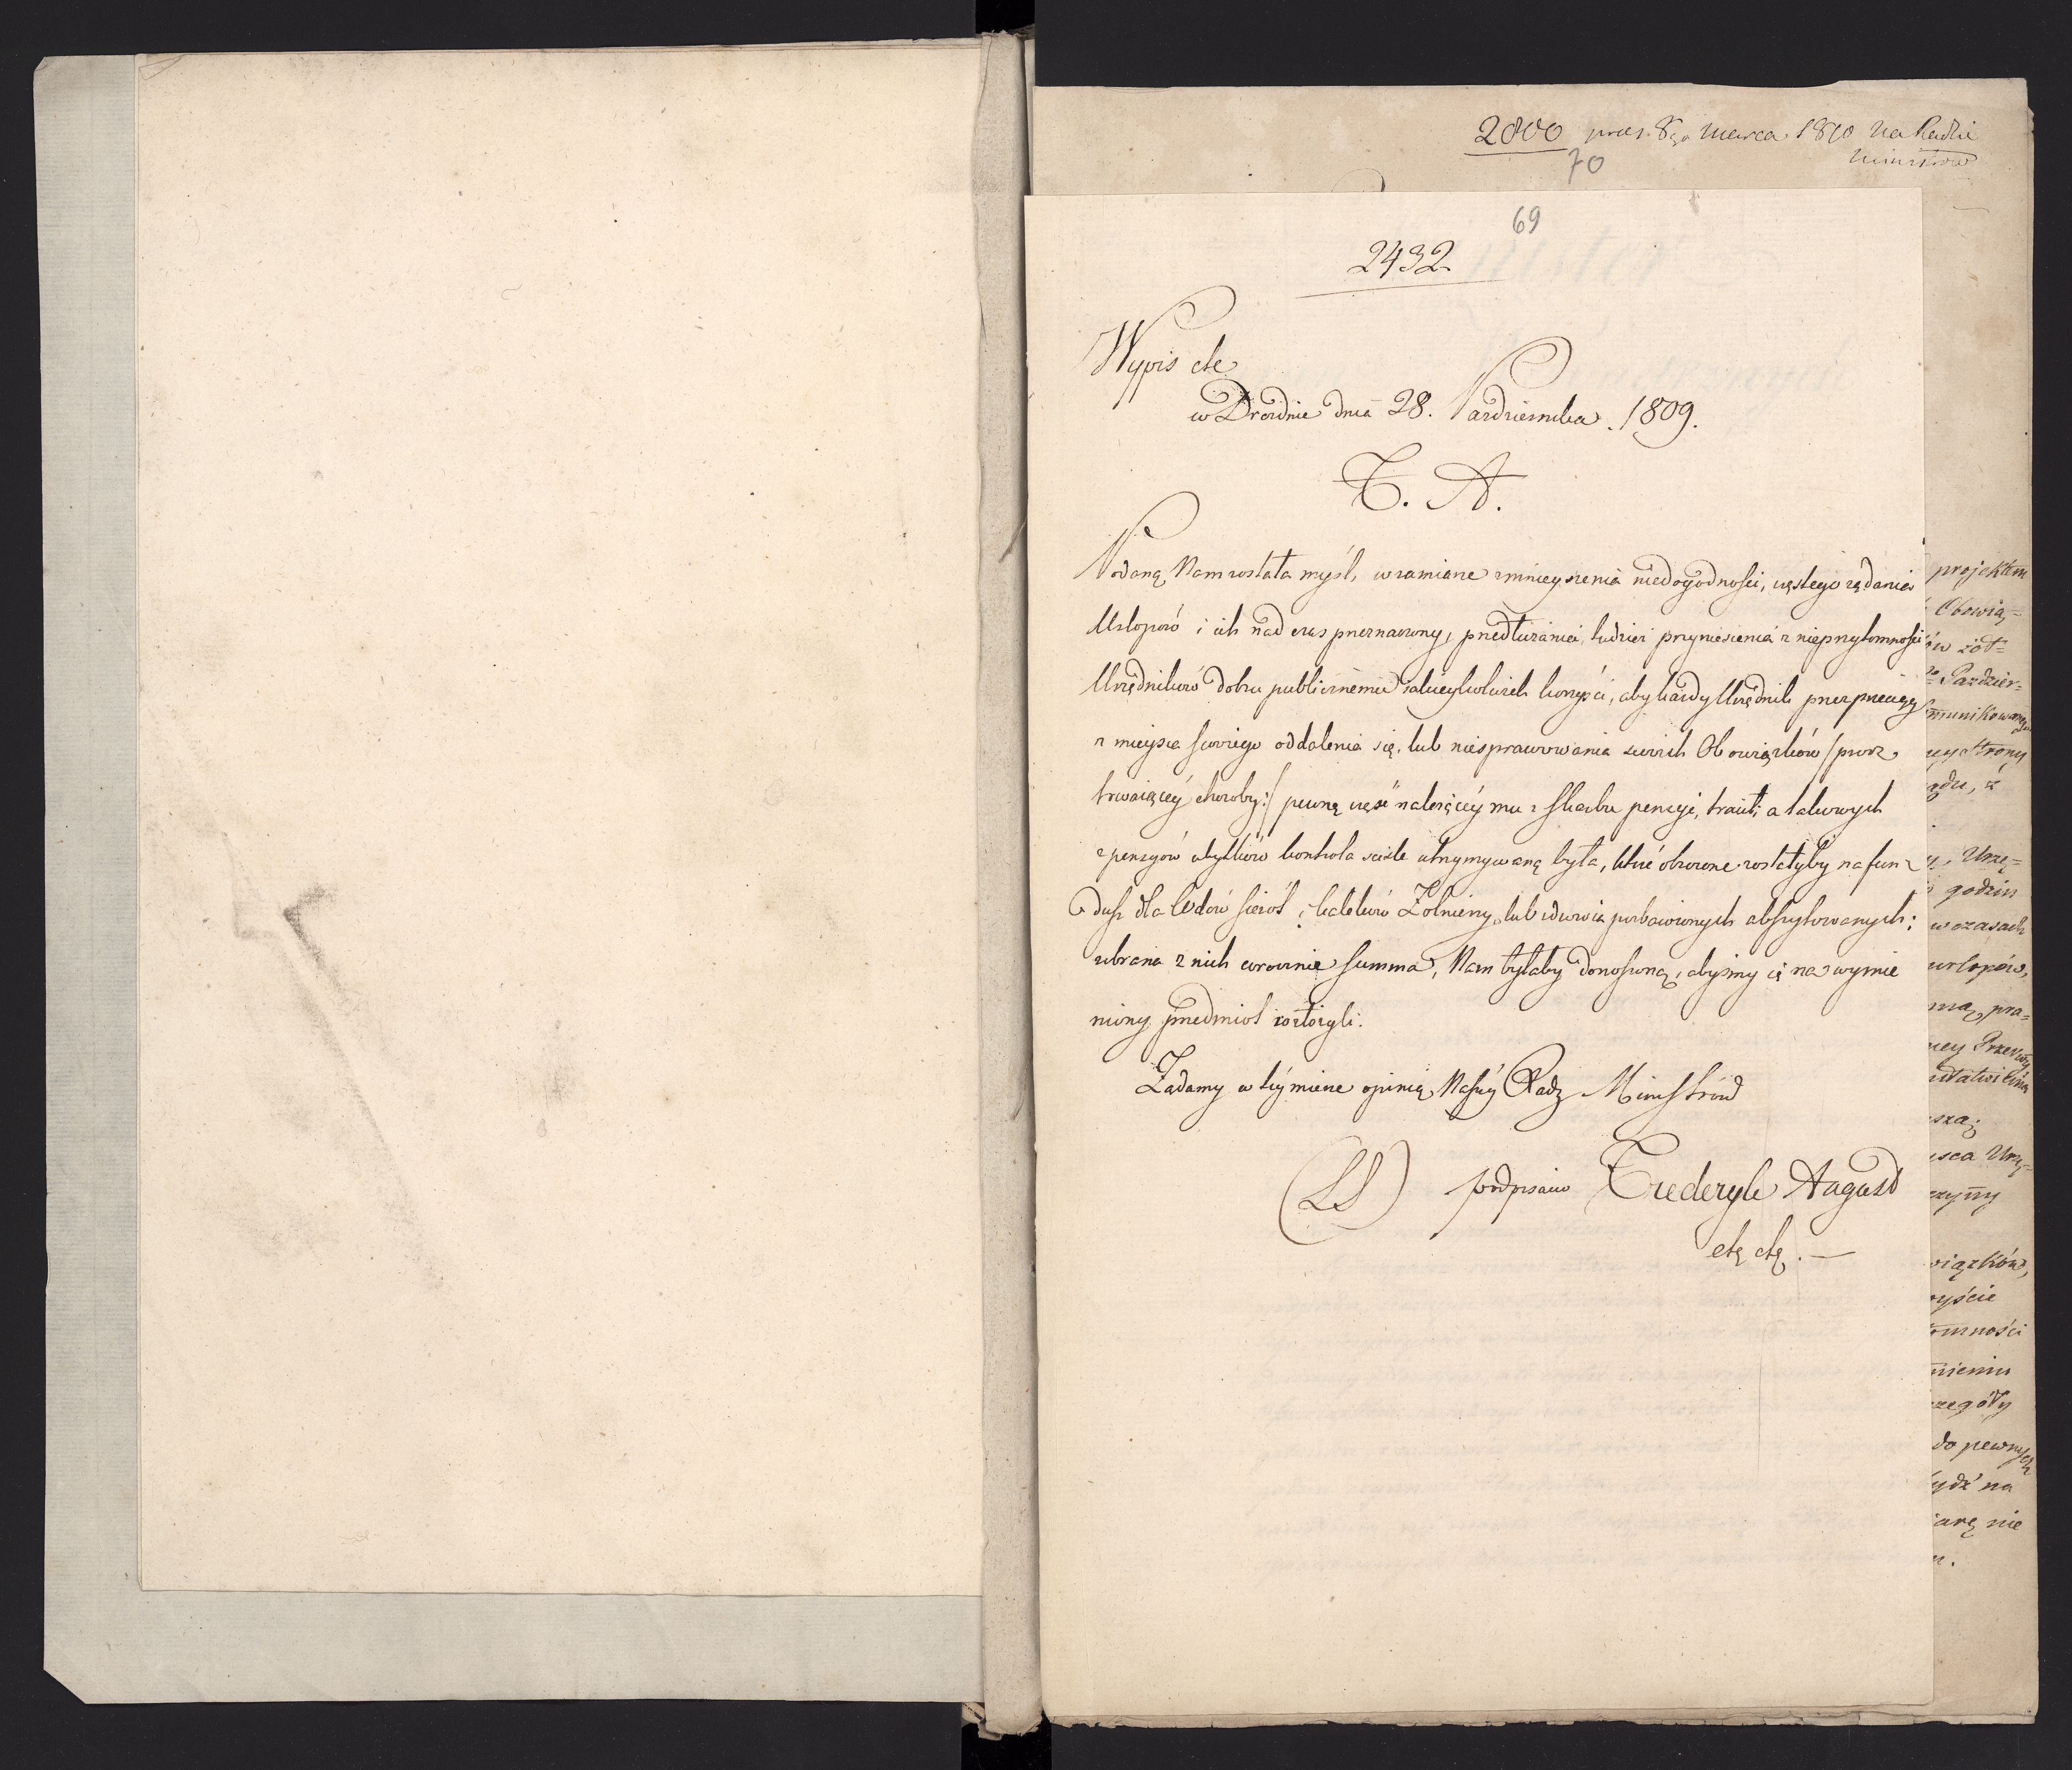 2800 prez. 8go Marca 1810 na Radzie
Ministrow
70
69
2432.
Wypis etc
w Dreźnie dnia 28. Pazdziernika. 1809.
F. A.
Podaną Nam została myśl, wzamiarze zmnieyszenia niedogodności, częstego żądania
Urlopów i ich nad czas przeznaczony, przedłużania, tudzież przyniesienia z nieprzytomności
Urzędników dobru publicznemu jakieykolwiek korzyści, aby każdy Urzędnik przez przeciąg
z mieysca swoiego oddalenia się, lub niesprawowania swoich Obowiązków /: procz
trwaiącey choroby :/ pewną część należącey mu z Skarbu pensyi, tracił; a takowych
z pensyów ubytków kontrola ściśle utrzymywaną była, które obrócone zostałyby na fun-
dusz dla Wdów sierót i kalików Żołnierzy, lub zdrowia pozbawionych abszytowanych;
zebrana z nich corocznie summa, Nam byłaby donoszoną, abyśmy ią na wymie
niony przedmiot rozłożyli.
Żadamy w tey mierze opinią Naszey Rady Ministrów
(LS) podpisano Frederyk August
etc etc. —
projektem
Obowią=
żoł=
Pazdzier=
munikowanego
Strony
ądu, z
Urzę=
godzin
wczasach
urlopów,
ma, pra=
usca Urzę=
wiązków,
omności
do pewnych
bydź na
iarę nie